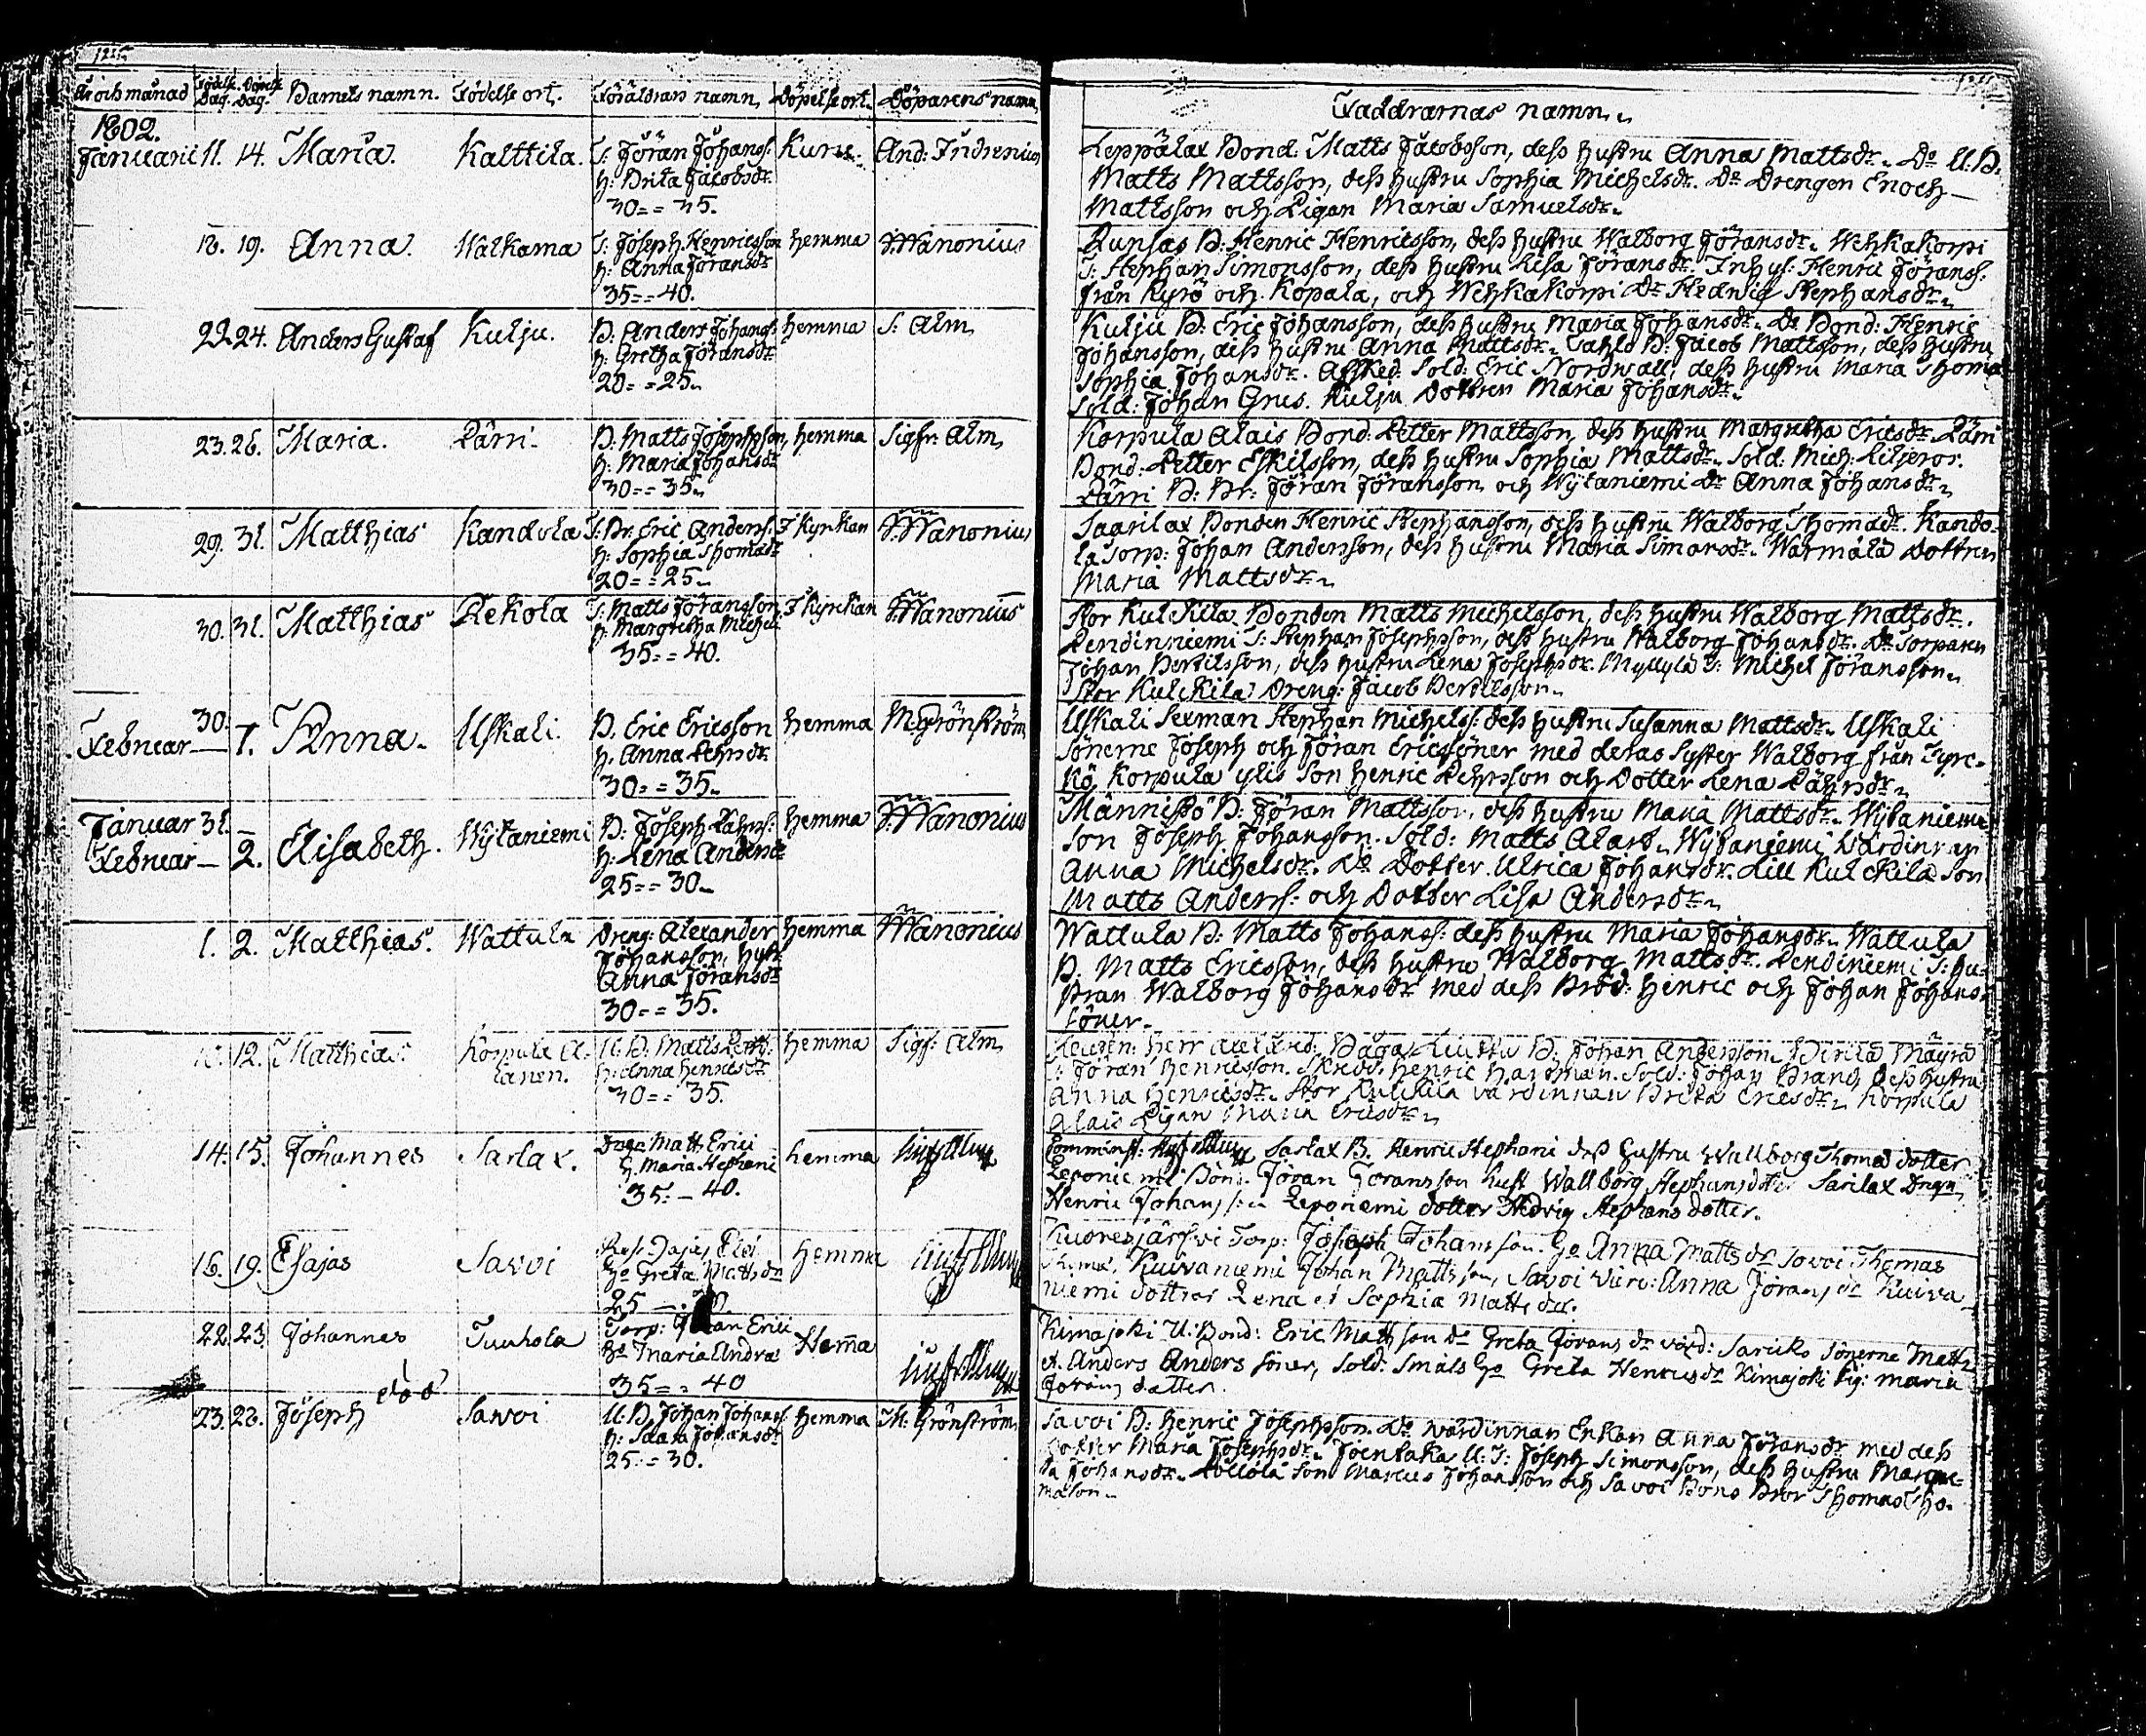 År och månad Födelse Dag. Döpelse Dag. Barnets namn. Födelse ort. Föräldrars namn. Döpelse ort. Döparens namn
1802.
Januarii 11. 14. Maria. Kalttila. T: Jöran Johanss: Kuru. And: Indrenius
h: Brita Jacobsdr
30 = = 35.
18. 19. Anna. Walkama T: Joseph Henricsson hemma Wanonius
h: Anna Jöransdr
35 = = 40.
22. 24. Anders Gustaf Kulju. B: Anders Johanss: hemma S: Alm
h: Gretha Jöransdr
20 = = 25.
23. 26. Maria. Pärri. B: Matts Josephsson hemma Sigfr: Alm
h: Maria Johansdr
30 = = 35.
29. 31. Matthias Kandola T: Br: Eric Anderss: I Kyrkan Wanonius
h: Sophia Thomædr
20 = = 25.
30. 31. Matthias Rekola T: Matts Jöransson I Kyrckan Wanonius
h: Margretha Michels
35 = = 40.
30.
Februar — 1. Anna. Uskali B. Eric Ericsson hemma M: Grönström
h. Anna Pehrsdr
30 = = 35.
Januar 31. —
Februar — 2. Elisabeth. Wytaniemi B: Joseph Pährs: hemma Wanonius
h: Lena Andersdr
25 = = 30.
1. 2. Matthias. Wattula Dreng: Alexander hemma Wanonius
Johansson, hust
Anna Jöransdr
30 = = 35.
12. Matthias Korpula A- U: B: Matts hemma Sigf: Alm
lanen. h: Anna Henricsdr
30 = = 35.
14. 15. Johannes Sarlax. Matt Erici hemma Sigf Alm
h. Maria Stephani
35. — 40.
16. 19. Esajas Savoi Esajas hemma Sigf Alm
Ho Greta Mattsdr
25 —
22. 23. Johannes Tuuhola Torp: Johan Erici Hemma Sigf Alm
Ho Maria Andræ
35 = = 40
död
23. 28. Joseph Savoi U: B. Johan Johanss hemma M: Grönström
h: Saara Johansdr
25 = = 30.
Faddrarnas namn.
Leppälax Bond: Matts Jacobsson, dess hustru Anna Mattsdr. Do U: B.
Matts Mattsson, dess hustru Sophia Michelsdr. Do Drengen Enoch
Mattsson och Pigan Maria Samuelsdr.
Runsas B: Henric Henricsson, dess hustru Walborg Jöransdr. Wehkakorpi
T: Stephan Simonsson, dess hustru Lisa Jöransdr. Inhys: Henric Jöranss:
från Kyrö och Kopala, och Wehkakorpi Dr Hedwig Stephansdr.
Kulju B: Eric Johansson, dess hustru Maria Johansdr. Do Bond: Henric
Johansson, dess hustru Anna Mattsdr. B: Jacob Mattsson, dess hustru
Sophia Johansdr. Afsked: Sold: Eric Nordwall, dess hustru Maria Thomæ
Sold: Johan Grus. Kulju Dottren Maria Johansdr.
Korpula Alais Bond: Petter Mattsson, dess hustru Margretha Ericsdr. Pärri
Bond: Petter Eskilsson, dess hustru Sophia Mattsdr. Sold: Mich: Liljeros.
Pärri B: Br: Jöran Jöransson och Wytaniemi Dr Anna Johansdr.
Saarilax Bonden Henric Stephansson, dess hustru Walborg Thomædr. Kando-
la Torp: Johan Andersson, dess hustru Maria Simonsdr. Warmala Dottren
Maria Mattsdr.
Stor Kulckila Bonden Matts Michelsson, dess hustru Walborg Mattsdr.
Pendinniemi T: Stephan Josephsson, dess hustru Walborg Johansdr. Do Torparen
Johan Bertilsson, dess hustru Lena Josephsdr. Myllylä T: Michel Jöransson
Stor Kulckila Dreng: Jacob Bertilsson.
Uskali Seeman Stephan Michelss: dess hustru Susanna Mattsdr. Uskali
Sönerne Joseph och Jöran Ericssöner med deras Syster Walborg från Tyrc-
kö, Korpula ylis Son Henric Pehrsson och Dotter Lena Pährsdr.
Männistö B: Jöran Mattsson, dess hustru Maria Mattsdr. Wytaniemi
Son Joseph Johansson. Sold: Matts Alard. Wytaniemi Värdinnan
Anna Michelsdr. Do Dotter Ulrica Johansdr. Lill Kulckila Son
Matts Anderss: och Dotter Lisa Andersdr.
Wattula B: Matts Johanss: dess hustru Maria Johansdr. Wattula
B: Matts Ericsson, dess hustru Walborg Mattsdr. Pendiniemi T: hu-
stran Walborg Johansdr med dess Bröd: Henric och Johan Johans-
söner.
Herr B: Johan Andersson. Mäyrä
T: Jöran Henricsson. Skredd: Henric Hartman. Sold: Johan Brand, dess hustru
Anna Henricsdr. Stor Kulckila värdinnan Brita Ericsdr. Korpula
Alais Pigan Maria Ericsdr.
Comminist: Sigf Alm, Sarlax B. Henric Stephani dess hustru Wallborg Thomæ dotter
Leponiemi Bond. Jöran Göransson hust Wallborg Stephansdotter Sarilax
Henric Johans Leponemi dotter Hedvig Stephans dotter.
Kuoresjärfvi Torp: Joseph Johansson. Ho Anna Mattsdr Savoi Thomas
Thomæ, Kuivaniemi Johan Mattsson, Savoi Anna Jöransdr Kuiva-
niemi dottrar Lena et Sophia Mattsdr.
Kimajoki U: Bond: Eric Mattsson do Greta Jöransdr värd: Sariko Sönerne Matts
et. Anders Anders söner, Sold: Smäls Ho Greta Henricsdr Kimajoki Pig: Maria
Jörans dotter.
Savoi B: Henric Josephsson. Do wärdinnan Enkan Anna Jöransdr med dess
Dotter Maria Josephsdr. Joentaka U: T: Joseph Simonsson, dess hustru Margre-
ta Johansdr. Löllölä Son Marcus Johansson och Savoi Bond Bror Thomas Tho-
masson.